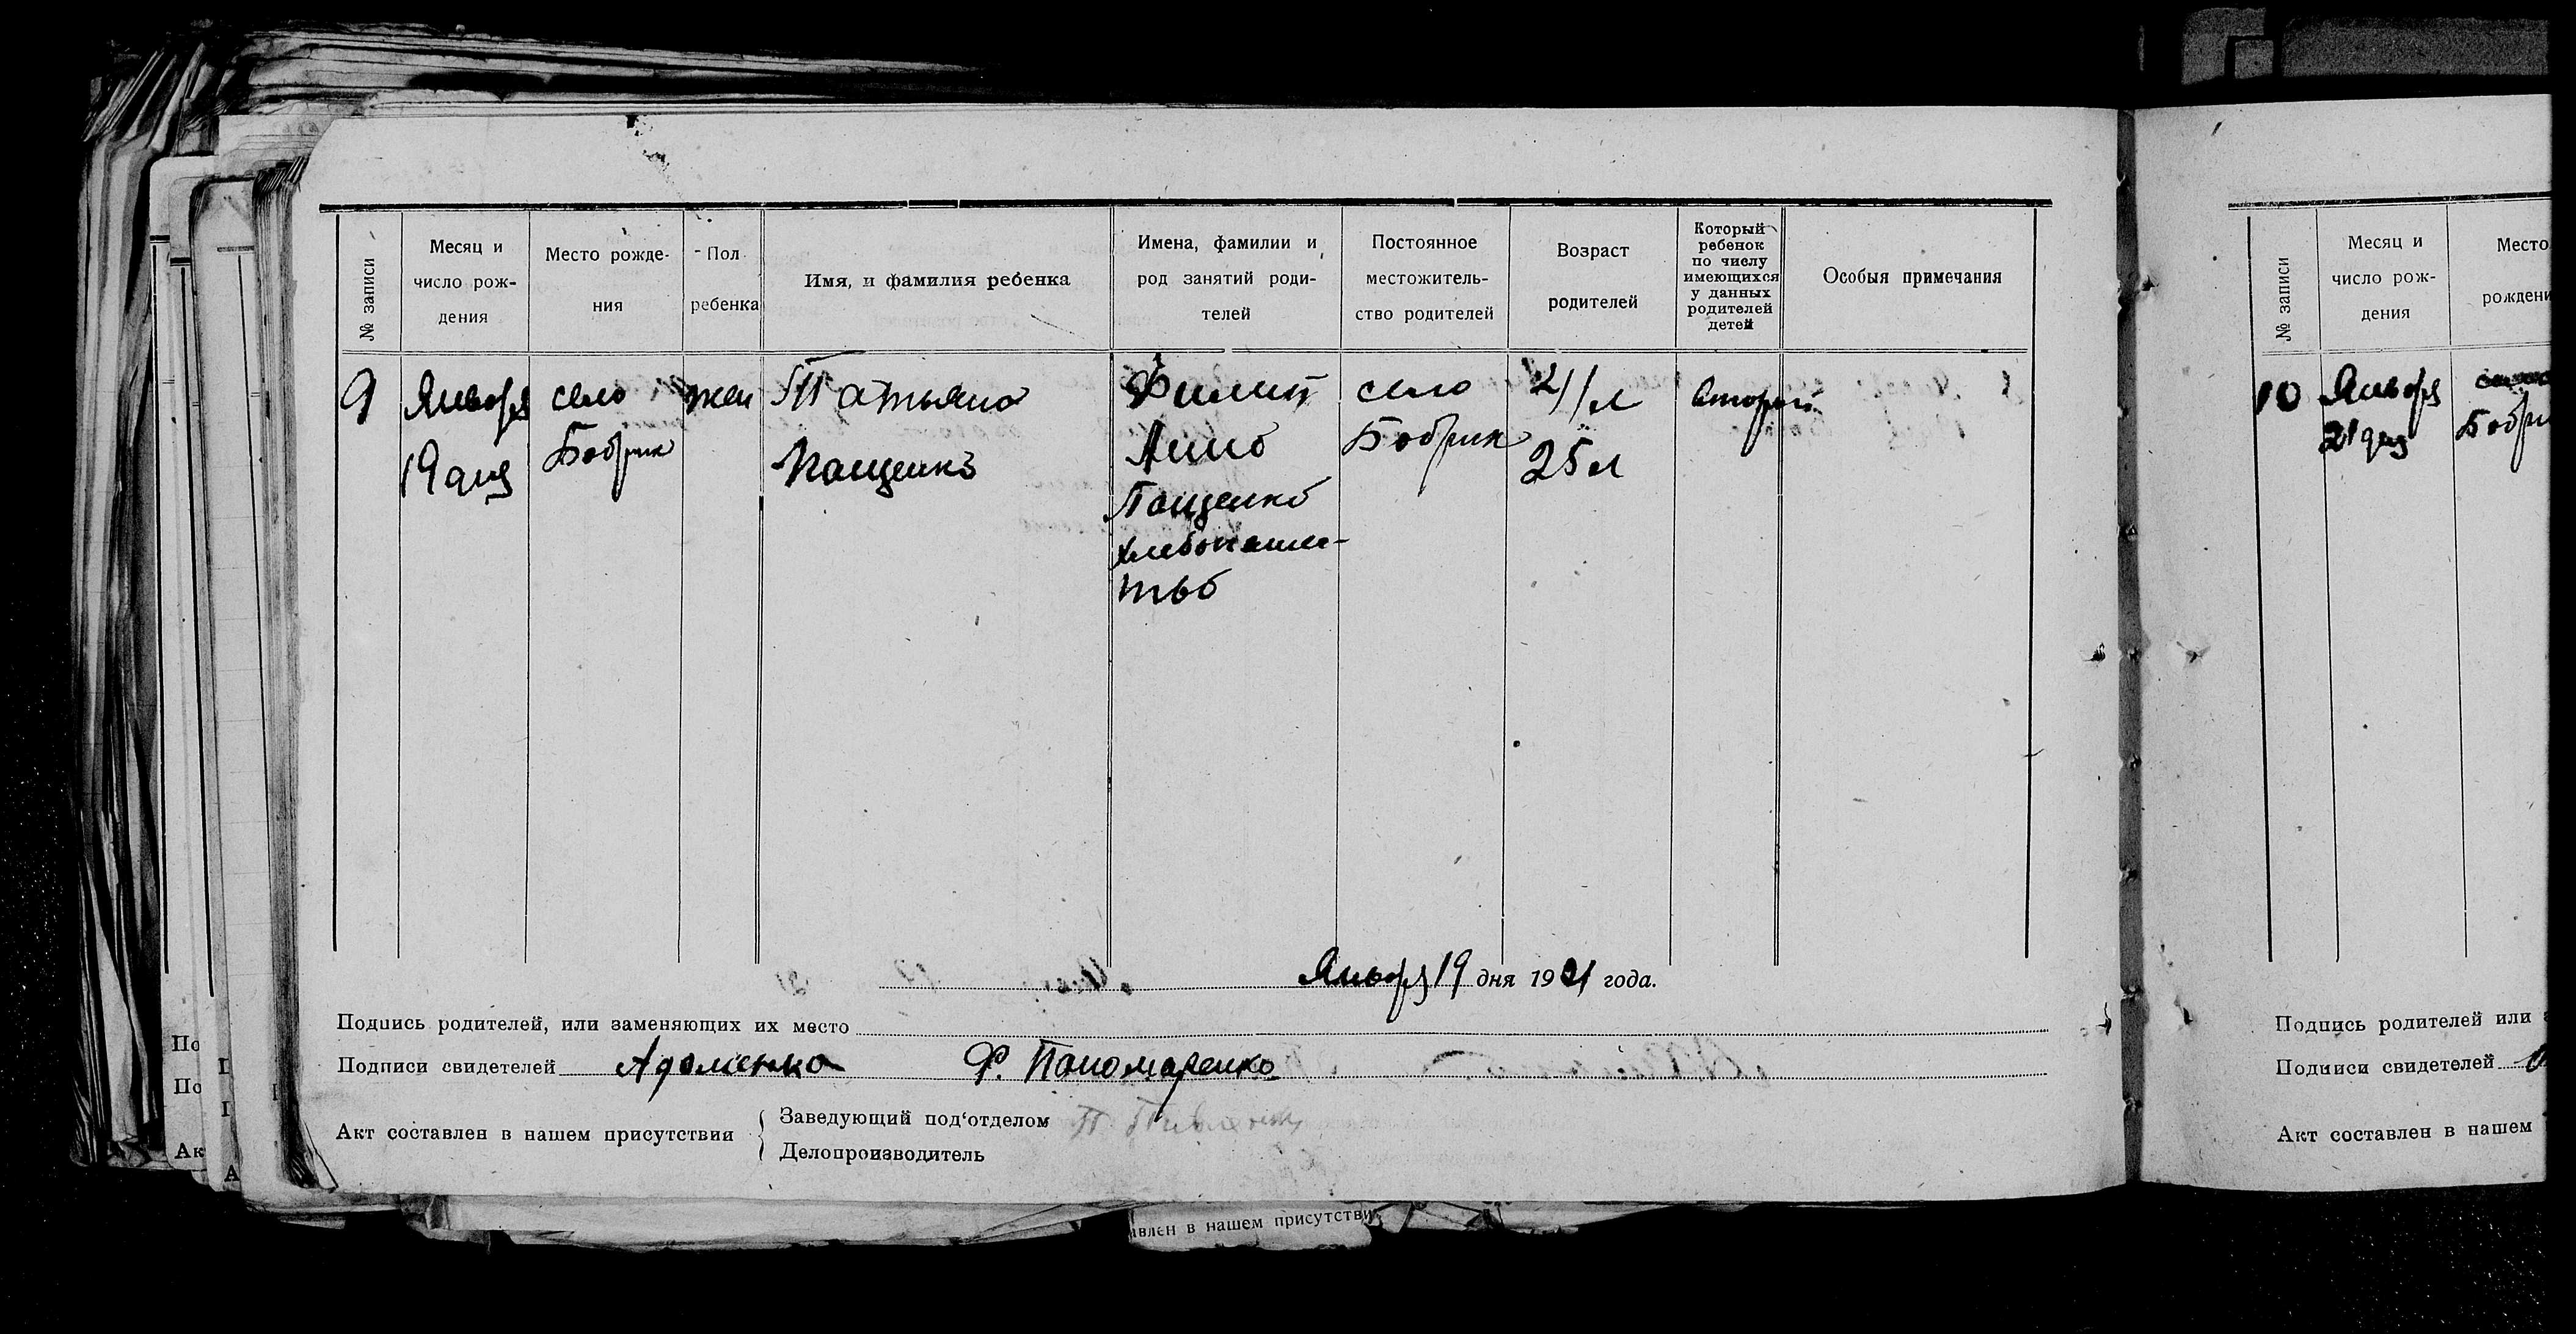 № записи
Месяц и
число рож-
дения
Место рожде-
ния
Пол
ребенка
Имя, и фамилия ребенка
Имена, фамилии и
род занятий роди-
телей
Постоянное
местожитель-
ство родителей
Возраст
родителей
Который
ребенок
по числу
имеющихся
у данных
родителей
детей
Особыя примечания
9
Январ
19 дня
село
Бобрик
жен
Татьяна
Пащенко
Филип
Анна
Пащенко
хлебопаше-
тво
село
Бобрик
21 л
25 л
второй
Январ 19 дня 1921 года.
Подпись родителей, или заменяющих их место
Подписи свидетелей Адаменко Ф. Пономаренко
Акт составлен в нашем присутствии
Заведующий под‘отделом
Делопроизводитель
№ записи
Месяц и
число рож-
дения
Место
рождени
10
Январ
21 дня
Бобри
Подпись родителей или
Подписи свидетелей
Акт составлен в нашем
По
По
Ак
А
авлен в нашем присутстви